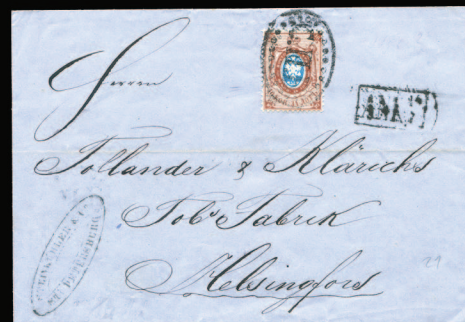 Herren
ANK
Tollander & Klärichs
Tobs Fabrik
Helsingfors
ST. PETERSBURG
29